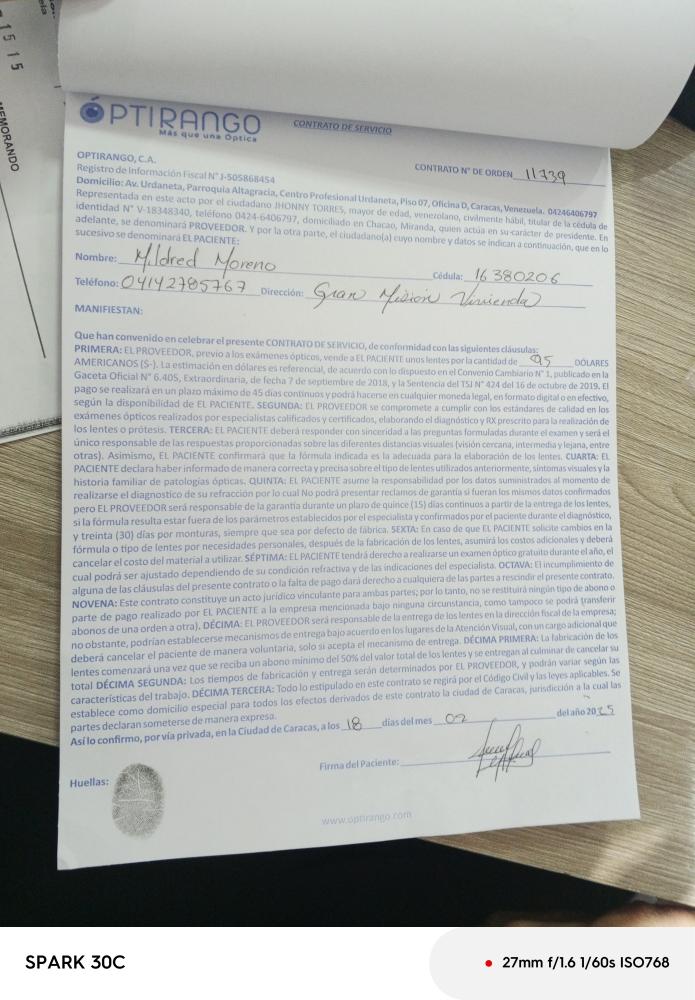 15 15
MEMORANDO
ÓPTIRANGO
Más que una Óptica
CONTRATO DE SERVICIO
OPTIRANGO, C.A.
CONTRATO N° DE ORDEN 11739
Registro de Información Fiscal N° J-505868454
Domicilio: Av. Urdaneta, Parroquia Altagracia, Centro Profesional Urdaneta, Piso 07, Oficina D, Caracas, Venezuela. 04246406797
Representada en este acto por el ciudadano JHONNY TORRES, mayor de edad, venezolano, civilmente hábil, titular de la cédula de
identidad N° V-18348340, teléfono 0424-6406797, domiciliado en Chacao, Miranda, quien actúa en su carácter de presidente. En
adelante, se denominará PROVEEDOR. Y por la otra parte, el ciudadano(a) cuyo nombre y datos se indican a continuación, que en lo
sucesivo se denominará EL PACIENTE:
Nombre: Mildred Moreno Cédula: 16380206
Teléfono: 04142785767 Dirección: Gran Mision Vivienda
MANIFIESTAN:
Que han convenido en celebrar el presente CONTRATO DE SERVICIO, de conformidad con las siguientes cláusulas:
PRIMERA: EL PROVEEDOR, previo a los exámenes ópticos, vende a EL PACIENTE unos lentes por la cantidad de 95 DÓLARES
AMERICANOS (S-). La estimación en dólares es referencial, de acuerdo con lo dispuesto en el Convenio Cambiario N° 1, publicado en la
Gaceta Oficial N° 6.405, Extraordinaria, de fecha 7 de septiembre de 2018, y la Sentencia del TSJ N° 424 del 16 de octubre de 2019. El
pago se realizará en un plazo máximo de 45 días continuos y podrá hacerse en cualquier moneda legal, en formato digital o en efectivo,
según la disponibilidad de EL PACIENTE. SEGUNDA: EL PROVEEDOR se compromete a cumplir con los estándares de calidad en los
exámenes ópticos realizados por especialistas calificados y certificados, elaborando el diagnóstico y RX prescrito para la realización de
los lentes o prótesis. TERCERA: EL PACIENTE deberá responder con sinceridad a las preguntas formuladas durante el examen y será el
único responsable de las respuestas proporcionadas sobre las diferentes distancias visuales (visión cercana, intermedia y lejana, entre
otras). Asimismo, EL PACIENTE confirmará que la fórmula indicada es la adecuada para la elaboración de los lentes. CUARTA: EL
PACIENTE declara haber informado de manera correcta y precisa sobre el tipo de lentes utilizados anteriormente, síntomas visuales y la
historia familiar de patologías ópticas. QUINTA: EL PACIENTE asume la responsabilidad por los datos suministrados al momento de
realizarse el diagnostico de su refracción por lo cual No podrá presentar reclamos de garantía si fueran los mismos datos confirmados
pero EL PROVEEDOR será responsable de la garantía durante un plazo de quince (15) días continuos a partir de la entrega de los lentes,
si la fórmula resulta estar fuera de los parámetros establecidos por el especialista y confirmados por el paciente durante el diagnóstico,
y treinta (30) días por monturas, siempre que sea por defecto de fábrica. SEXTA: En caso de que EL PACIENTE solicite cambios en la
fórmula o tipo de lentes por necesidades personales, después de la fabricación de los lentes, asumirá los costos adicionales y deberá
cancelar el costo del material a utilizar. SÉPTIMA: EL PACIENTE tendrá derecho a realizarse un examen óptico gratuito durante el año, el
cual podrá ser ajustado dependiendo de su condición refractiva y de las indicaciones del especialista. OCTAVA: El incumplimiento de
alguna de las cláusulas del presente contrato o la falta de pago dará derecho a cualquiera de las partes a rescindir el presente contrato.
NOVENA: Este contrato constituye un acto jurídico vinculante para ambas partes; por lo tanto, no se restituirá ningún tipo de abono o
parte de pago realizado por EL PACIENTE a la empresa mencionada bajo ninguna circunstancia, como tampoco se podrá transferir
abonos de una orden a otra), DÉCIMA: EL PROVEEDOR será responsable de la entrega de los lentes en la dirección fiscal de la empresa;
no obstante, podrían establecerse mecanismos de entrega bajo acuerdo en los lugares de la Atención Visual, con un cargo adicional que
deberá cancelar el paciente de manera voluntaria, solo si acepta el mecanismo de entrega. DÉCIMA PRIMERA: La fabricación de los
lentes comenzará una vez que se reciba un abono mínimo del 50% del valor total de los lentes y se entregan al culminar de cancelar su
total DÉCIMA SEGUNDA: Los tiempos de fabricación y entrega serán determinados por EL PROVEEDOR, y podrán variar según las
características del trabajo. DÉCIMA TERCERA: Todo lo estipulado en este contrato se regirá por el Código Civil y las leyes aplicables. Se
establece como domicilio especial para todos los efectos derivados de este contrato la ciudad de Caracas, jurisdicción a la cual las
partes declaran someterse de manera expresa.
Así lo confirmo, por vía privada, en la Ciudad de Caracas, a los 18 días del mes 02 del año 2025
Firma del Paciente:
Huellas:
www.optirango.com
SPARK 30C
27mm f/1.6 1/60s ISO768